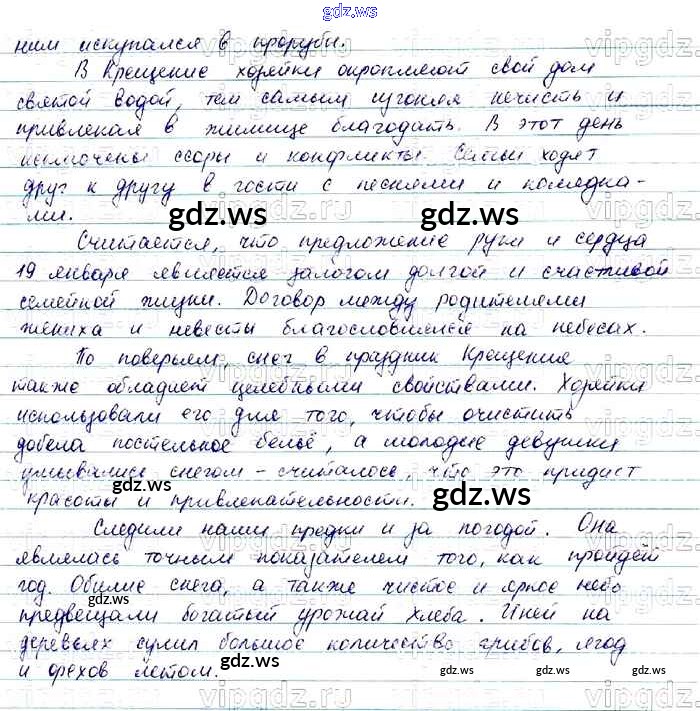 gdz.ws
ним искупался в проруби.
В Крещение хозяйки окропляют свой дом
святой водой, тем самым изгоняя нечисть и
привлекая в жилище благодать. В этот день
исключены ссоры и конфликты. Семьи ходят
друг к другу в гости с песнями и колядка-
ми.
gdz.ws gdz.ws gdz.ws
Считается, что предложение руки и сердца
19 января является залогом долгой и счастливой
семейной жизни. Договор между родителями
жениха и невесты благословляется на небесах.
По поверьям снег в праздник Крещения
также обладает целебными свойствами. Хозяйки
использовали его для того, чтобы очистить
добела постельное бельё, а молодые девушки
умывались снегом – считалось, что это придаст
красоты и привлекательности.
gdz.ws gdz.ws
Следили наши предки и за погодой. Она
являлась точным показателем того, как пройдёт
год. Обилие снега, а также чистое и ярное небо
предвещали богатый урожай хлеба. Иней на
деревьях сулил большое количество грибов, ягод
и орехов летом.
gdz.ws gdz.ws gdz.ws gdz.ws